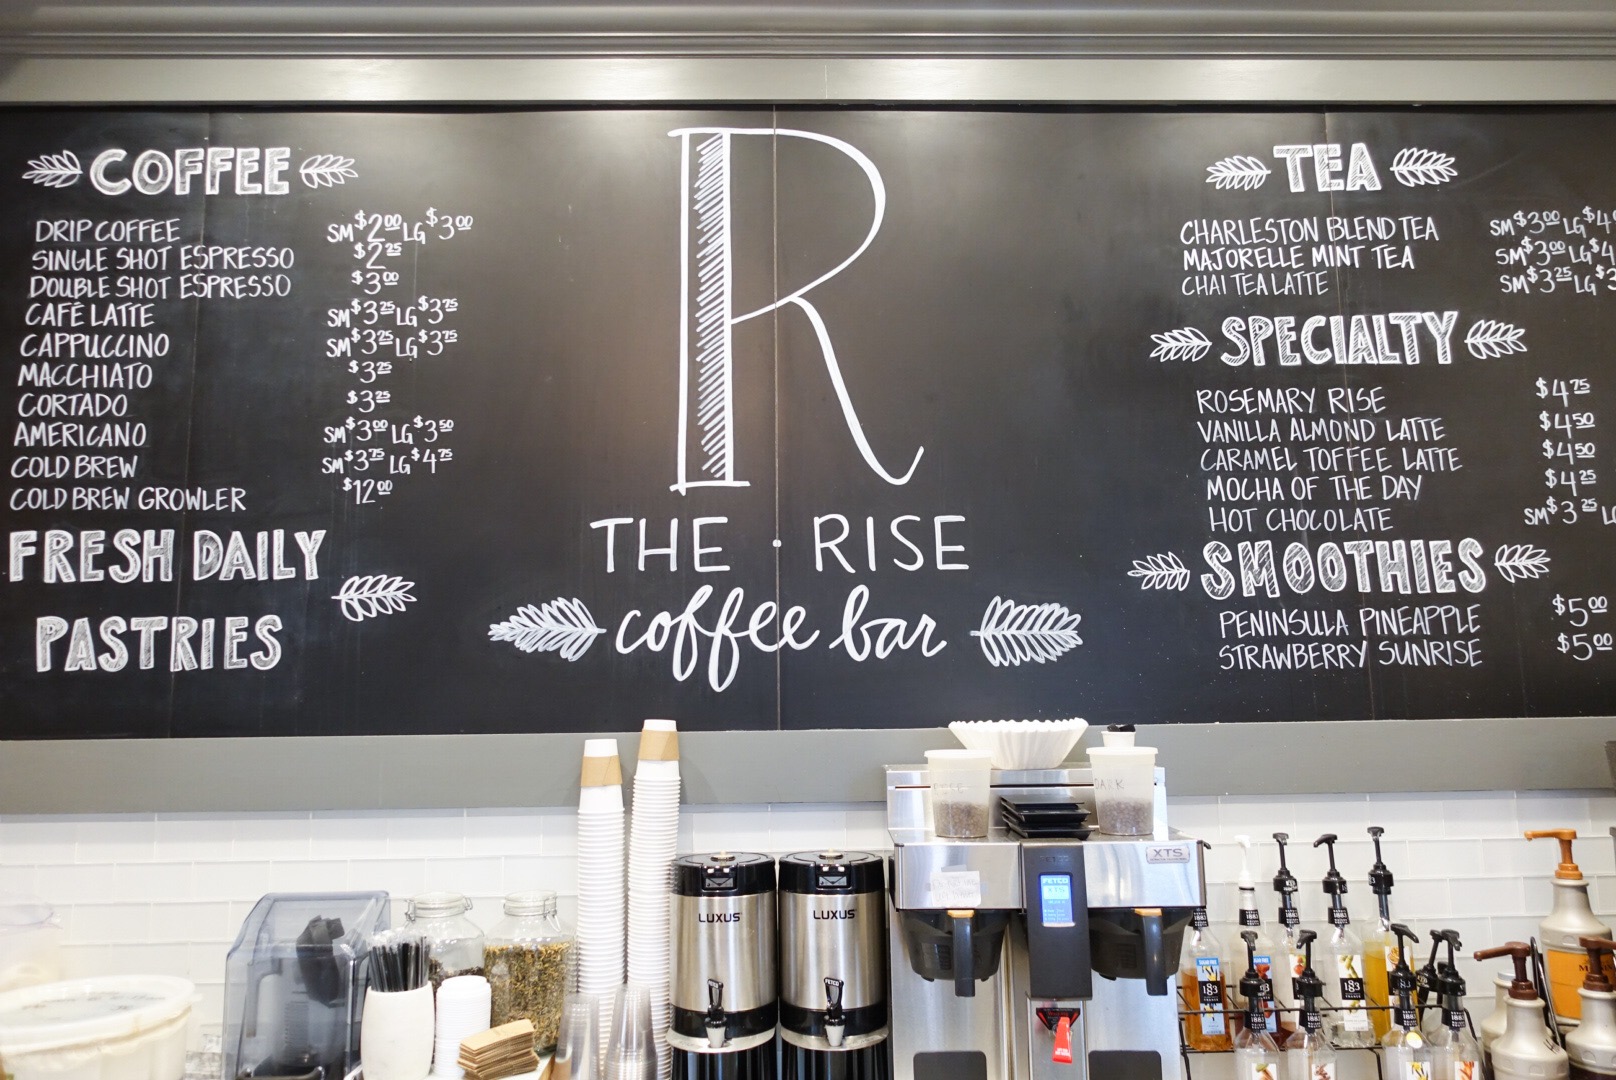 COFFEE
DRIP COFFEE SM $2.00 LG $3.00
SINGLE SHOT ESPRESSO $2.25
DOUBLE SHOT ESPRESSO $3.00
CAFÉ LATTE SM $3.25 LG $3.75
CAPPUCCINO SM $3.25 LG $3.75
MACCHIATO $3.25
CORTADO $3.25
AMERICANO SM $3.00 LG $3.50
COLD BREW SM $3.75 LG $4.75
COLD BREW GROWLER $12.00
FRESH DAILY
PASTRIES
R
THE · RISE
coffee bar
TEA
CHARLESTON BLEND TEA SM $3.00 LG $4
MAJORELLE MINT TEA SM $3.00 LG $4
CHAI TEA LATTE SM $3.25 LG $3
SPECIALTY
ROSEMARY RISE $4.75
VANILLA ALMOND LATTE $4.50
CARAMEL TOFFEE LATTE $4.50
MOCHA OF THE DAY $4.25
HOT CHOCOLATE SM $3.25
SMOOTHIES
PENINSULA PINEAPPLE $5.00
STRAWBERRY SUNRISE $5.00
DARK
XTS
FETCO
LUXUS
LUXUS
FETCO
1883
1883
1883
1883